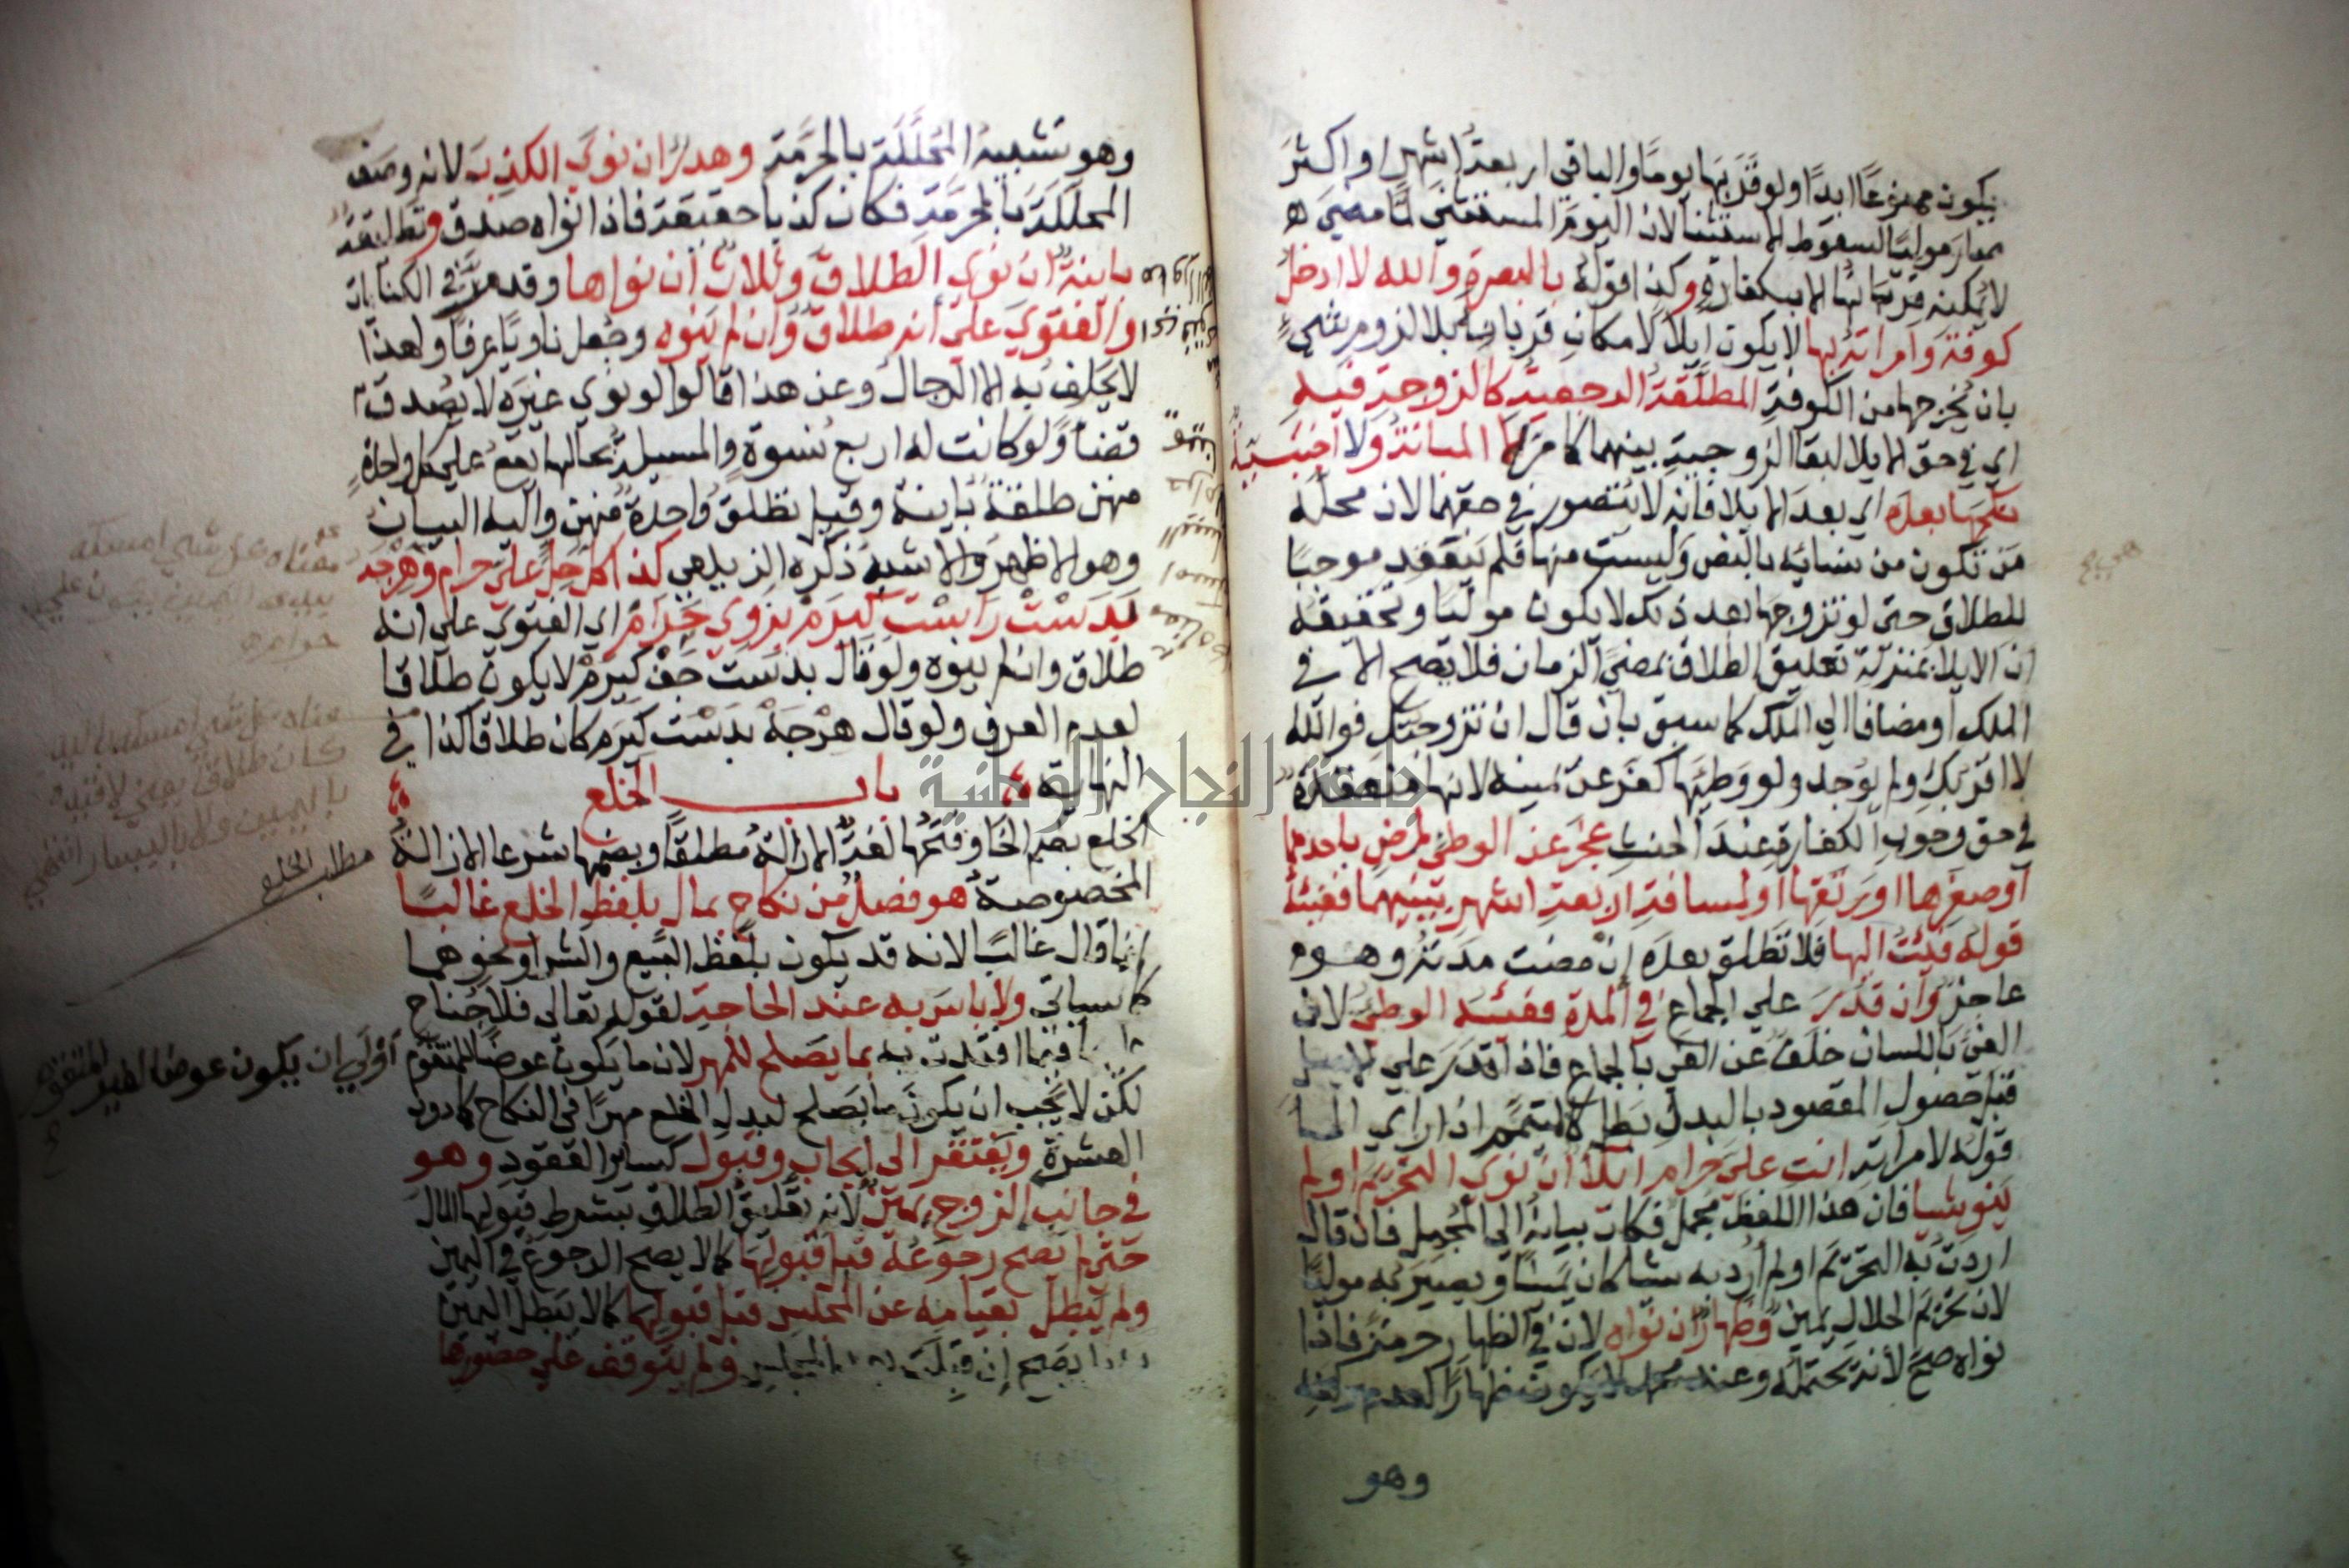 يكون ممنوعا ابدا ولو قربها يوما والباقي اربعة اشهر او اكثر
صار موليا لسقوط الاستثنا لان اليوم المستثني لما مضي
لا يمكنه قربانها الا بكفارة وكذا قوله بالبصرة والله لا ادخل
كوفة وامراته بها لا يكون ايلاً لامكان قربانها بلا لزوم شيءٍ
بان يخرجها من الكوفة المطلقة الرجعية كالزوجة فيه
اي في حق الايلا لبقا الزوجية بينهما كما مر لا المبانة ولا اجنبية
نكحها بعده اي بعد الايلا فانه لا يتصور في حقهما لان محله
من تكون من نسائه بالنص وليست منها فلم ينعقد موجبا
للطلاق حتي لو تزوجها بعد ذلك لا يكون موليا وتحقيقه
ان الايلا بمنزلة تعليق الطلاق بمضي الزمان فلا يصح الا في
الملك او مضافا الي الملك كما سبق بان قال ان تزوجتك فوالله
لا اقربك ولم يوجد ولو وطئها كفر عن يمينه لانها منعقدة
في حق وجوب الكفارة عند الحنث عجز عن الوطئ لمرض باحدهما
او صغرها او رتقها او لمسافة اربعة اشهر بينهما ففيئه
قوله فئت اليها فلا تطلق بعده ان مضت مدته وهو
عاجز وان قدر علي الجماع في المدة ففيئه الوطئ لان
الفئ باللسان خلف عن الفئ بالجماع فاذا قدر علي الاصل
قبل حصول المقصود بالبدل بطل كالمتيمم اذا راي الما
قوله لامراته انت علي حرام ايلاً ان نوي التحريم او لم
ينو شيا فان هذا اللفظ مجمل فكان بيانه الي المجمل فان قال
اردت به التحريم او لم ارد به شيا كان يمينا ويصير به موليا
لان تحريم الحلال يمين وظهار ان نواه لان في الظهار حرمة فاذا
نواه صح لانه يحتمله وعند محمد لا يكون ظهارا لعدم ركنه
وهو
وهو تشبيه المحللة بالمحرمة وهدر ان نوي الكذب لانه وصف
المحللة بالمحرمة فكان كذبا حقيقة فاذا نواه صدق وتطليقة
باينة ان نوي الطلاق وثلاث ان نواها وقد مر في الكنايات
والفتوي علي انه طلاق وان لم ينوه وجعل ناويا عرفا ولهذا
لا يحلف به الا الرجال وعن هذا قالوا لو نوي غيره لا يصدق
قضاً ولو كانت له اربع نسوة والمسيلة بحالها يقع علي كل واحدة
منهن طلقة باينة وقيل تطلق واحدة منهن واليه البيان
وهو الاظهر والاشبه ذكره الزيلعي كذا كل حل علي حرام وهرجه
بدست راست كيرم بروي حرام اي الفتوي علي انه
طلاق وان لم ينوه ولو قال بدست جف كيرم لا يكون طلاقا
لعدم العرف ولو قال هرجه بدست كيرم كان طلاقا كذا في
النهاية
باب الخلع
الخلع بضم الخا وفتحها لغة الازالة مطلقا وبضمها شرعا الازالة
المخصوصة هو فصل من نكاح بمال بلفظ الخلع غالبا
انما قال غالبا لانه قد يكون بلفظ البيع والشرا ونحوهما
كما سياتي ولا باس به عند الحاجة لقوله تعالى فلا جناح
فيما افتدت به بما يصلح للمهر لان ما يكون عوضا للمتقوم
اولي ان يكون عوضا لغير المتقوم
لكن لا يجب ان يكون ما يصلح لبدل الخلع مهرا في النكاح كما دون
العشرة ويفتقر الى ايجاب وقبول كساير العقود وهو
في جانب الزوج يمين لانه تعليق الطلاق بشرط قبولها المال
حتى لم يصح رجوعه قبل قبولها كما لا يصح الرجوع في اليمين
ولم يبطل بقيامه عن المجلس قبل قبولها كما لا يبطل اليمين
يصح ان قبلت المجلس ولم يتوقف علي حضورها
مطلب الخلع
جامعة النجاح الوطنية